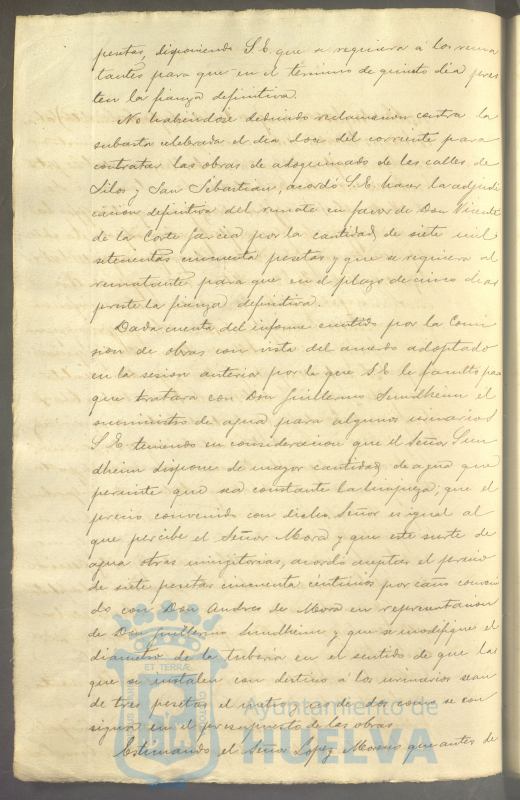 pesetas, disponiendo S. E. que se requiera á los rema
tantes para que en el termino de quinto dia pres
ten la fianza definitiva.
No habiendose deducido reclamacion contra la
subasta celebrada el dia dos del corriente para
contratar las obras de adoquinado de las calles de
Silos y San Sebastian, acordó S. E. hacer la adjudi
cacion definitiva del remate en favor de Don Vicente
de la Corte Garcia por la cantidad de siete mil
setecientas cincuenta pesetas y que se requiera al
rematante para que en el plazo de cinco dias
preste la fianza definitiva.
Dada cuenta del informe emitido por la Comi
sion de obras con vista del acuerdo adoptado
en la sesion anterior por la que S. E. le facultó para
que tratara con Don Guillermo Sundheim el
suministro de agua para algunos urinarios
S. E. teniendo en consideracion que el Señor Sun
dheim dispone de mayor cantidad de agua que
permite que sea constante la limpieza; que el
precio convenido con dicho Señor es igual al
que percibe el Señor Mora y que este surte de
agua otras mingitorias, acordó aceptar el precio
de siete pesetas cincuenta centimos por caño conveni
do con Don Andres de Mora en representacion
de Don Guillermo Sundheim y que se modifique el
diametro de la tuberia en el sentido de que las
que se instalen con destino á los urinarios sean
de tres pesetas el metro en vez de dos como se con
signa en el presupuesto de las obras.
Estimando el Señor Lopez Moreno que antes de
ET TERRÆ
Ayuntamiento de
HUELVA